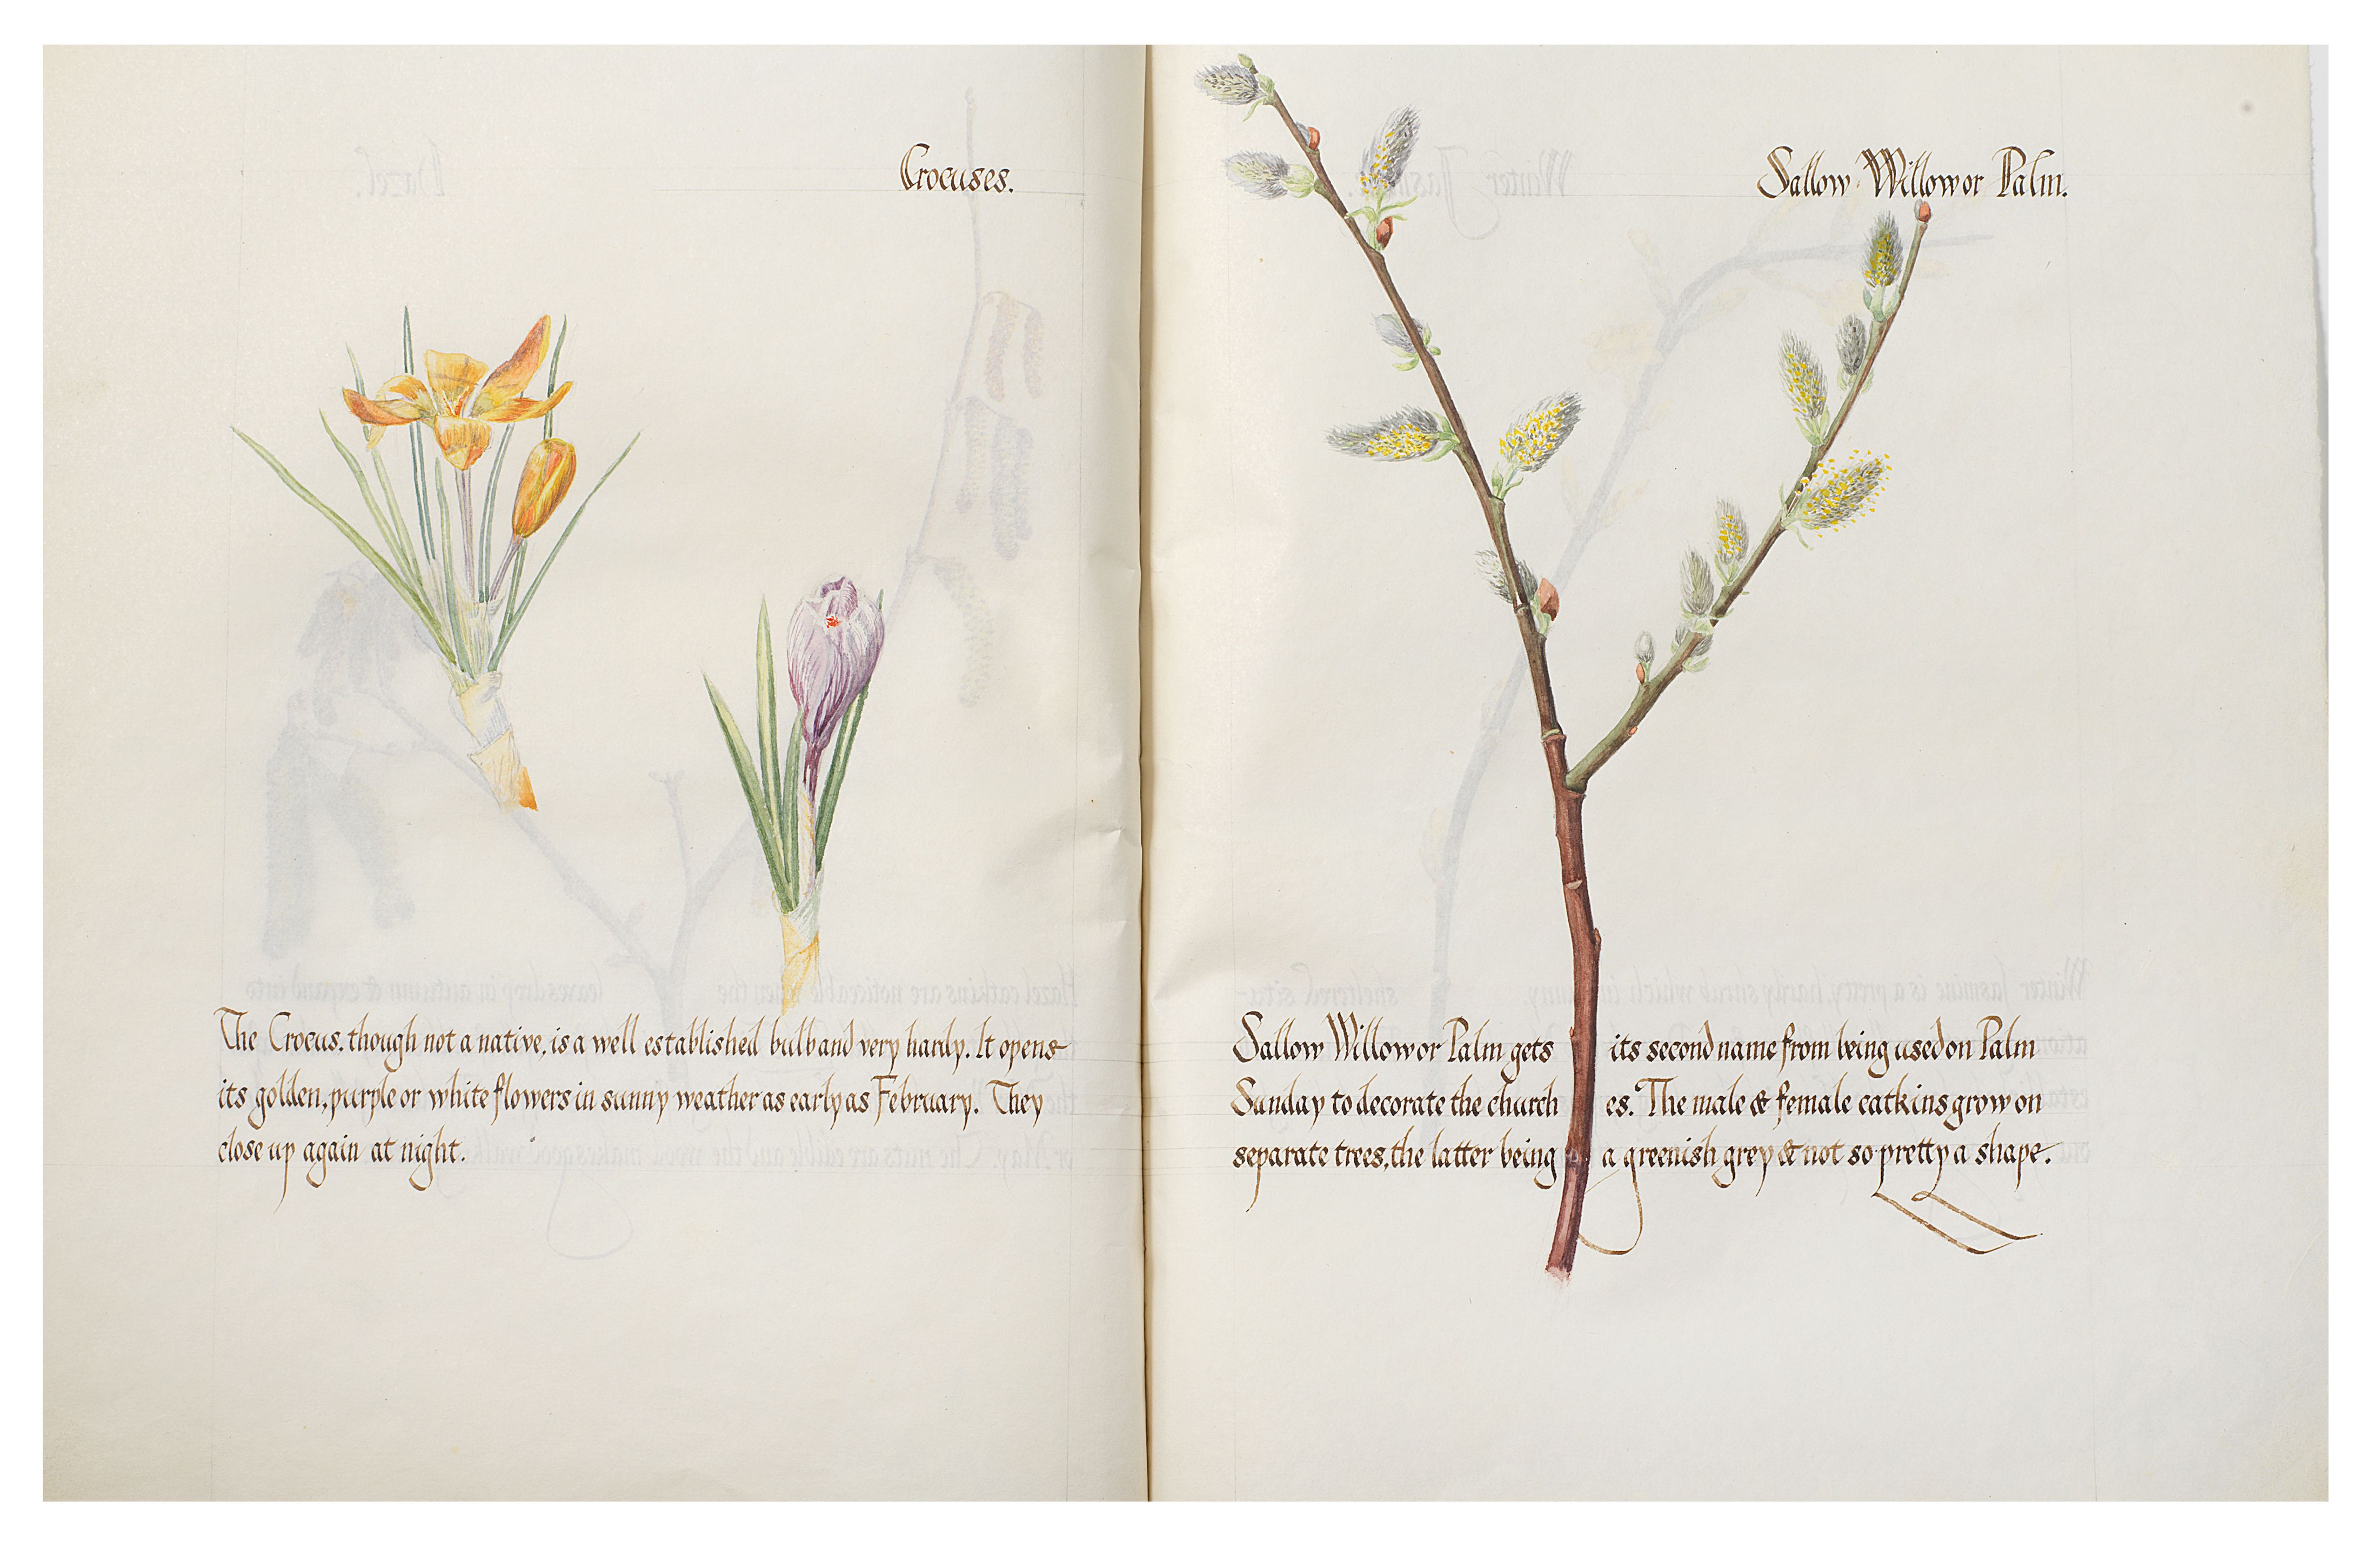 Crocuses.
The Crocus, though not a native, is a well established bulb and very hardy. It opens
its golden, purple or white flowers in sunny weather as early as February. They
close up again at night.
Sallow Willow or Palm.
Sallow Willow or Palm gets its second name from being used on Palm
Sunday to decorate the churches. The male & female catkins grow on
separate trees, the latter being a greenish grey & not so pretty a shape.